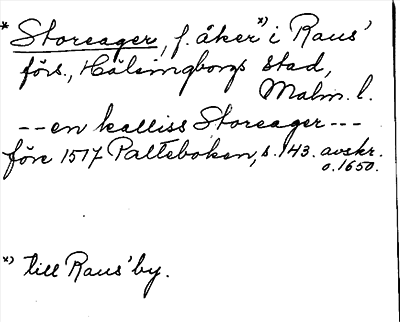 * Storeager, f. åker *) i Raus'
förs., Hälsingborgs stad,
Malm. l.
-- en kalliss Storeager ---
före 1517 Palteboken, s. 143. avskr.
o. 1650.
*) till Raus' by.